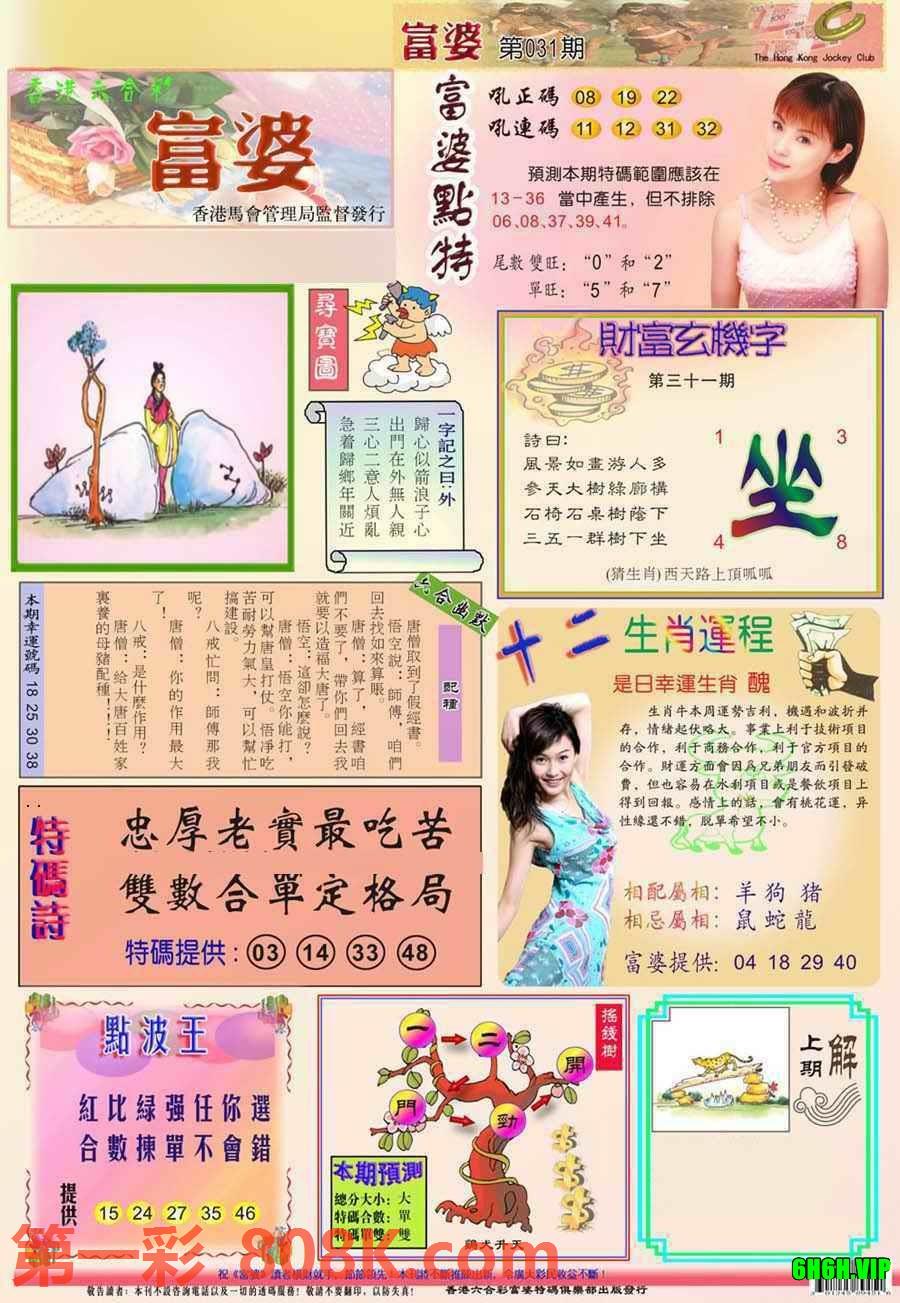 富婆 第031期
The Hong Kong Jockey Club
香港六合彩
富婆
香港馬會管理局監督發行
富婆點特
吼正碼 08 19 22
吼連碼 11 12 31 32
預測本期特碼範圍應該在
13-36 當中產生，但不排除
06、08、37、39、41。
尾數雙旺：“0”和“2”
單旺：“5”和“7”
尋寶圖
一字記之曰：外
歸心似箭浪子心
出門在外無人親
三心二意人煩亂
急着歸鄉年關近
財富玄機字
第三十一期
詩曰：
風景如畫游人多
參天大樹綠廊橫
石椅石桌樹蔭下
三五一群樹下坐
1 3
坐
4 8
(猜生肖)西天路上頂呱呱
六合幽默
配種
唐僧取到了假經書。
悟空說：師傅，咱們
回去找如來算賬。
唐僧：算了，經書咱
們不要了，帶你們回去我
就要以造福大唐了。
悟空：這卻怎麼說？
唐僧：悟空你能打，
可以幫唐皇打仗。悟凈吃
苦耐勞力氣大，可以幫忙
搞建設。
八戒忙問：師傅那我
呢？
唐僧：你的作用最大
了！
八戒：是什麼作用？
唐僧：給大唐百姓家
裏養的母豬配種！！！！
本期幸運號碼 18 25 30 38
十二生肖運程
是日幸運生肖 醜
生肖牛本周運勢吉利，機遇和波折并
存，情緒起伏略大。事業上利于技術項目
的合作，利于商務合作，利于官方項目的
合作。財運方面會因爲兄弟朋友而引發破
費，但也容易在水利項目或是餐飲項目上
得到回報。感情上的話，會有桃花運，异
性緣還不錯，脱單希望不小。
相配屬相：羊狗豬
相忌屬相：鼠蛇龍
富婆提供：04 18 29 40
特碼詩
忠厚老實最吃苦
雙數合單定格局
特碼提供：03 14 33 48
點波王
紅比緑强任你選
合數揀單不會錯
提供 15 24 27 35 46
搖錢樹
一 二 開 門 勁
本期預測
總分大小：大
特碼合數：單
特碼單雙：雙
鷄犬升天
上期解
第一彩 808K.com
6H6H.VIP
敬告讀者：本刊不設咨詢電話以及一切的透碼服務！敬請不要翻印，以防失真！
香港六合彩富婆特碼俱樂部出版發行